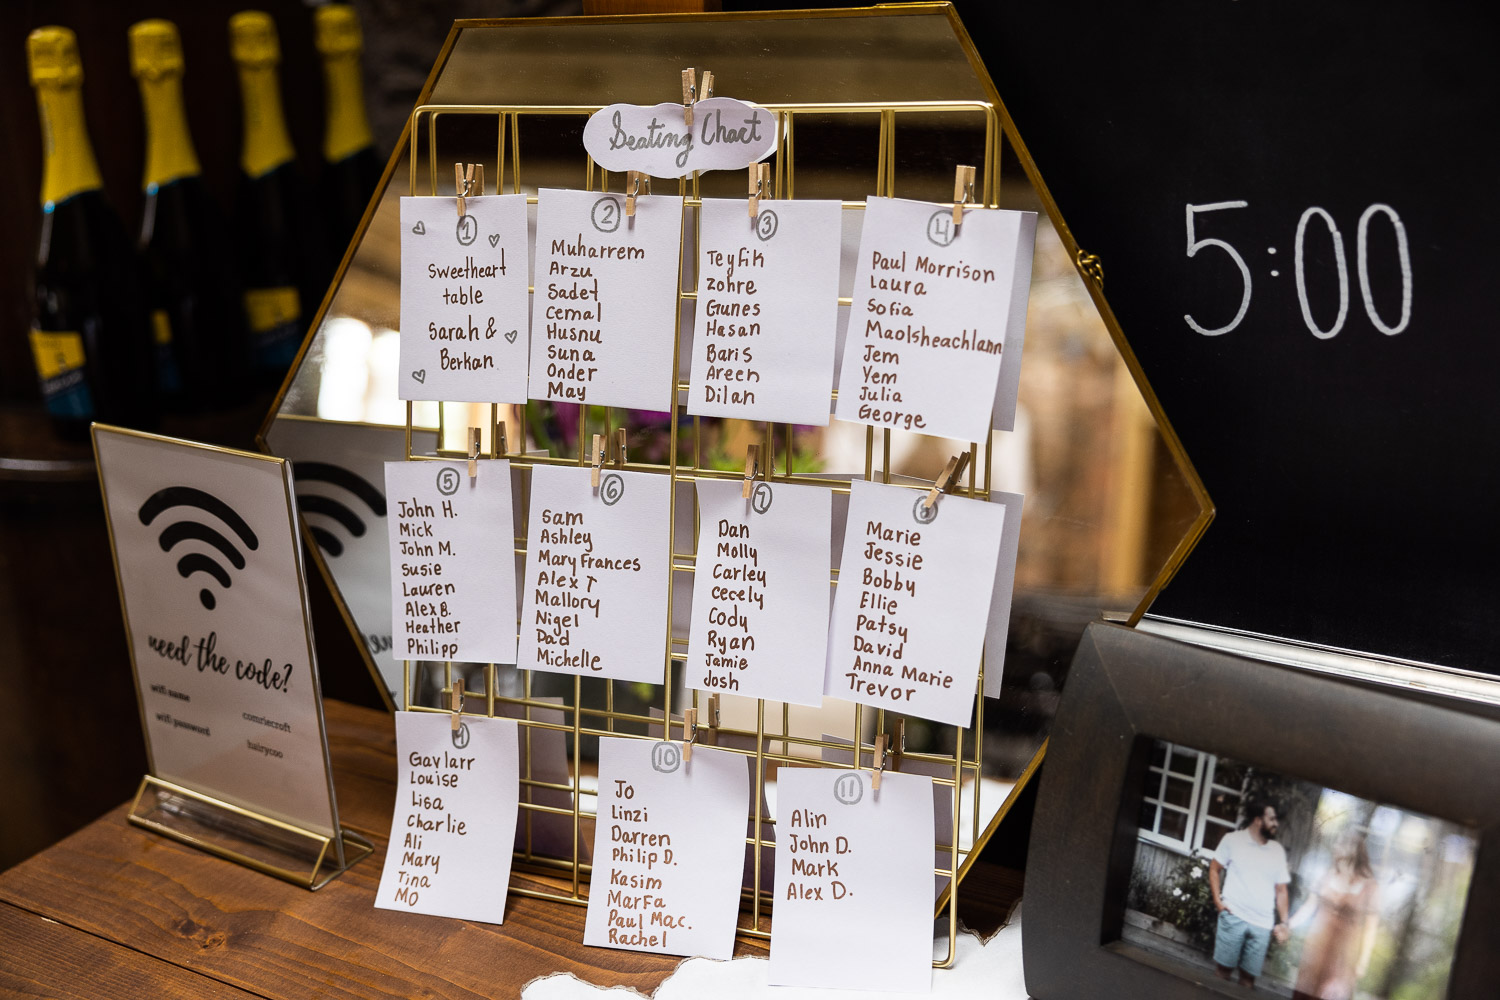 Seating Chart
1
Sweetheart
table
Sarah &
Berkan
2
Muharrem
Arzu
Sadet
Cemal
Husnu
Suna
Onder
May
3
Teyfik
Zohre
Gunes
Hasan
Baris
Areen
Dilan
4
Paul Morrison
Laura
Sofia
Maolsheachlann
Jem
Yem
Julia
George
5:00
5
John H.
Mick
John M.
Susie
Lauren
Alex B.
Heather
Philipp
6
Sam
Ashley
Mary Frances
Alex T
Mallory
Nigel
Dad
Michelle
7
Dan
Molly
Carley
Cecely
Cody
Ryan
Jamie
Josh
8
Marie
Jessie
Bobby
Ellie
Patsy
David
Anna Marie
Trevor
9
Gaylarr
Louise
Lisa
Charlie
Ali
Mary
Tina
Mo
10
Jo
Linzi
Darren
Philip D.
Kasim
Marfa
Paul Mac.
Rachel
11
Alin
John D.
Mark
Alex D.
need the code?
wifi name comriecroft
wifi password hairycoo